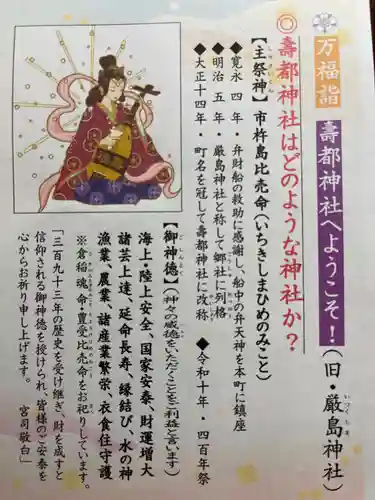 万福詣 壽都神社へようこそ!(旧・厳島神社)
いつくしま
◎壽都神社はどのような神社か?
しゅさいじん
【主祭神】市杵島比売命(いちきしまひめのみこと)
◆寛永四年・弁財船の救助に感謝し、船中の弁天神を本町に鎮座
◆明治五年・厳島神社と称して郷社に列格
◆令和十年・四百年祭
◆大正十四年・町名を冠して壽都神社に改称
ごしんとく
【御神徳】(神々の威徳をいただくことをご利益と言います)
海上・陸上安全、国家安泰、財運増大
諸芸上達、延命長寿、縁結び、水の神
漁業、農業、諸産業繁栄、衣食住守護
※倉稲魂命・豊受比売命をお祀りしています。
「三百九十三年の歴史を受け継ぎ、財を成すと
信仰される御神徳を授けられ、皆様のご安泰を
心からお祈り申し上げます。 宮司敬白」